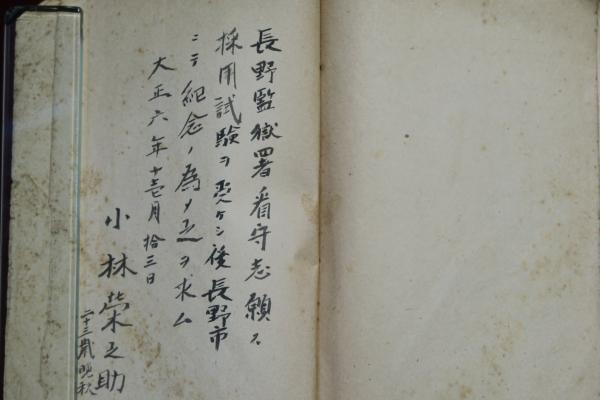 長野監獄署看守志願ス
採用試験ヲ受ケシ後長野市
ニテ紀念ノ為メ之ヲ求ム
大正六年十壱月拾三日
小林栄之助
二十三歳晩秋